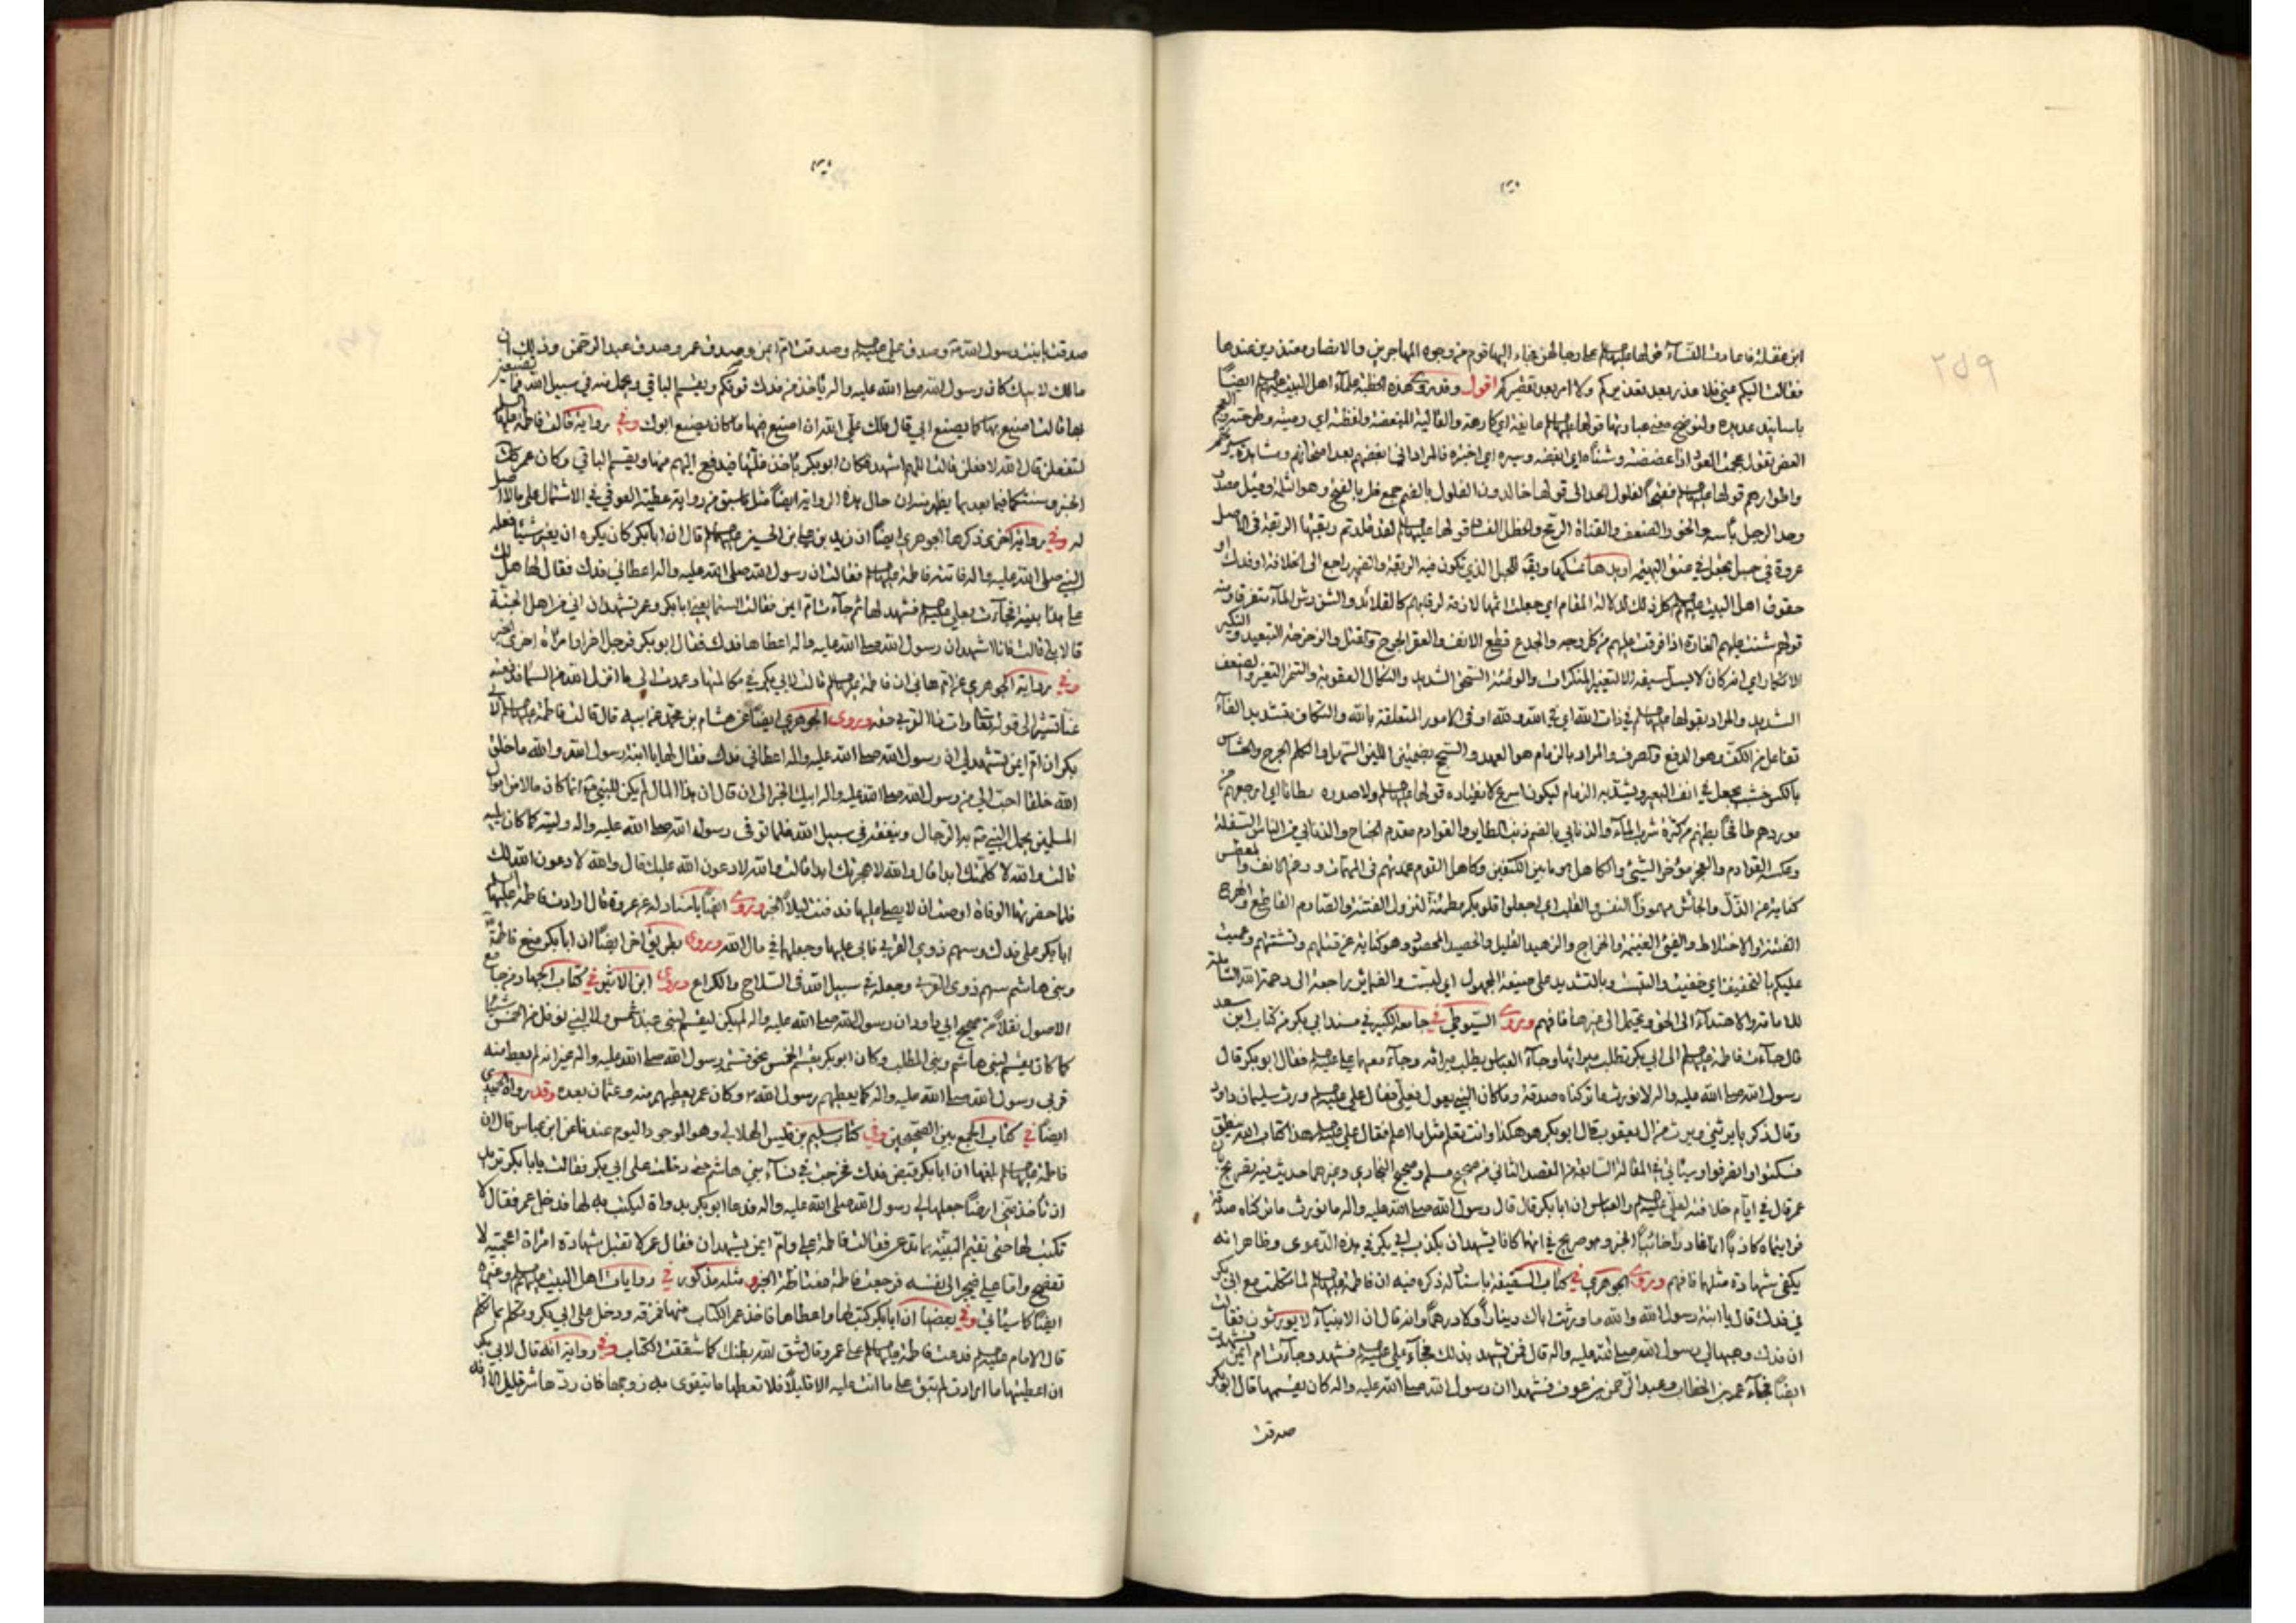 ابن عقلة فاعادت النساء قولها عليها السلم على رجالهن فجاء اليها قوم من وجوه المهاجرين والانصار معتذرين عندها
فقالت اليكم عني فلا عذر بعد تعذيركم ولا امر بعد تقصيركم اقول وقد روى هذه الخطبة علماء اهل البيت عليهم السلم ايضاً
باسانيد عديدة ولنوضح معنى عباراتها قولها عليها السلم عايفة اي كارهة والقالية المبغضة ولفظته اي رميته وطرحته والعجم
العض تقول عجمت العود اذا عضضته وشنأه اي ابغضه وسبره اي اختبره فالمراد اني ابغضهم بعد امتحانهم ومشاهدة سيرتهم
واطوارهم قولها عليها السلم فقبحاً لفلول الحد الى قولها خالدون الفلول بالضم جمع فل بالفتح وهو الثلمة وقيل مصدر
وحد الرجل بأسه والخور الضعف والقناة الرمح والخطل الفساد قولها عليها السلم لقد قلدتهم ربقتها الربقة في الاصل
عروة في حبل يجعل في عنق البهيمة او يدها تمسكها ويقال للحبل الذي تكون فيه الربقة والضمير راجع الى الخلافة او فدك او
حقوق اهل البيت عليهم السلم كل ذلك لدلالة المقام اي جعلت اثمها لازمة لرقابهم كالقلائد والشن رش الماء متفرقاً ومنه
قولهم شننت عليهم الغارة اذا فرقت عليهم من كل وجه والجدع قطع الانف والعقر الجرح والقتل والزحزحة التبعيد والنكير
الانكار اي انه كان لا يسل سيفه الا لتغيير المنكرات والوطئة السحق الشديد والنكال العقوبة والتنمر التغير والغضب
الشديد والمراد بقولها عليها السلم في ذات الله اي في الله ولله او في الامور المتعلقة بالله والتكاف بتشديد الفاء
تفاعل من الكف وهو الدفع والصرف والمراد بالزمام هو العهد والسجح بضمتين اللين السهل والكلم الجرح والخشاش
بالكسر خشب يجعل في انف البعير ويشد به الزمام ليكون اسرع لانقياده قولها عليها السلم ولاصدرهم بطاناً اي ارجعهم من
موردهم طافحاً بطنهم من كثرة شرب الماء والذنابي بالضم ذنب الطاير والقوادم مقدم الجناح والذنابي من الناس السفلة
وعكسه القوادم والعجز مؤخر الشيء والكاهل هو ما بين الكتفين وكاهل القوم عمدتهم في المهمات ورغم الانف والمعطس
كناية عن الذل والجأش مهموزاً النفس والقلب اي اجعلوا قلوبكم مطمئنة لنزول الفتنة والصارم القاطع والهرج
الفتنة والاختلاط والفيء الغنيمة والخراج والزهيد القليل والحصيد المحصود وهو كناية عن قتلهم وتشتتهم وعميت
عليكم بالتخفيف اي خفيت والتبست وبالتشديد على صيغة المجهول اي لبست والضماير راجعة الى رحمة الله الشاملة
للامامة والاهتداء الى الحق ويحتمل الى غيرها فافهم وروى السيوطي في جامعه الكبير في مسند ابي بكر من كتاب ابن سعد
قال جاءت فاطمة عليها السلم الى ابي بكر تطلب ميراثها وجاء العباس يطلب ميراثه وجاء معهما علي عليه السلم فقال ابو بكر قال
رسول الله صلى الله عليه واله لا نورث ما تركناه صدقة وما كان النبي يعول فعلي فقال علي عليه السلم ورث سليمان داود
وقال زكريا يرثني ويرث من ال يعقوب قال ابو بكر هو هكذا وانت تعلم مثل ما اعلم فقال علي عليه السلم هذا كتاب الله ينطق
فسكتوا وانصرفوا وسيأتي في المقالة السابعة من المقصد الثاني من صحيح مسلم وصحيح البخاري وغيرهما حديث فيه تصريح بان
عمر قال في ايام خلافته لعلي عليه السلم والعباس ان ابا بكر قال قال رسول الله صلى الله عليه واله ما نورث ما تركناه صدقة
فرايتماه كاذباً اثماً غادراً خائناً الخبر وهو صريح في انهما كانا يشهدان بكذب ابي بكر في هذه الدعوى وظاهر انه
يكفي شهادة مثلهما فافهم وروى الجوهري في كتاب السقيفة باسناد له ذكره فيه ان فاطمة عليها السلم لما تكلمت مع ابي بكر
في فدك قال يا ابنة رسول الله والله ما ورث اباك ديناراً ولا درهماً وانه قال ان الانبياء لا يورثون فقالت
ان فدك وهبها لي رسول الله صلى الله عليه واله قال فمن يشهد بذلك فجاء علي عليه السلم فشهد وجاءت ام ايمن فشهدت
ايضاً فجاء عمر بن الخطاب وعبد الرحمن بن عوف فشهدا ان رسول الله صلى الله عليه واله كان يقسمها قال ابو بكر
صدقت
صدقت يا ابنة رسول الله وصدق علي عليه السلم وصدقت ام ايمن وصدق عمر وصدق عبد الرحمن وذلك ان
مالك لابيك كان رسول الله صلى الله عليه واله يأخذ من فدك قوتكم ويقسم الباقي ويحمل منه في سبيل الله فما تصنعين
بها قالت اصنع بها كما يصنع ابي قال فلك علي الله ان اصنع فيها ما كان يصنع ابوك وفي رواية قالت فاطمة عليها السلم
لتفعلن قال الله لافعلن قالت اللهم اشهد فكان ابو بكر يأخذ غلتها فيدفع اليهم منها ويقسم الباقي وكان عمر كذلك
الخبر وستسمع فيما بعد ما يظهر منه ان حال هذه الرواية ايضاً مثل ما سبق من رواية عطية العوفي في الاشتمال على ما لا اصل
له وفي رواية اخرى ذكرها الجوهري ايضاً ان زيد بن علي بن الحسين عليهم السلم قال ان ابا بكر كان يكره ان يغير شيئاً فعله
النبي صلى الله عليه واله فاتته فاطمة عليها السلم فقالت ان رسول الله صلى الله عليه واله اعطاني فدك فقال لها هل لك
على هذا بينة فجاءت بعلي عليه السلم فشهد لها ثم جاءت ام ايمن فقالت الستما يعني ابا بكر وعمر تشهدان اني من اهل الجنة
قالا بلى قالت فانا اشهد ان رسول الله صلى الله عليه واله اعطاها فدك فقال ابو بكر فرجل اخر او امرأة اخرى الخبر
وفي رواية الجوهري عن ام هاني ان فاطمة عليها السلم قالت لابي بكر في مكالمتها وعمدت الى ما انزل الله من السماء فرفعته
عنا تشير الى قوله تعالى وات ذا القربى حقه وروى الجوهري ايضاً عن هشام بن محمد عن ابيه قال قالت فاطمة عليها السلم لابي
بكر ان ام ايمن تشهد لي ان رسول الله صلى الله عليه واله اعطاني فدك فقال لها يا ابنة رسول الله والله ما خلق
الله خلقاً احب الي من رسول الله صلى الله عليه واله ابيك الخبر الى ان قال ان هذا المال لم يكن للنبي انما كان مالا من اموال
المسلمين يحمل النبي به الرجال وينفقه في سبيل الله فلما توفى رسول الله صلى الله عليه واله وليته كما كان يليه
قالت والله لا كلمتك ابداً قال والله لا هجرتك ابداً قالت والله لادعون الله عليك قال والله لادعون الله لك
فلما حضرتها الوفاة اوصت ان لا يصلي عليها فدفنت ليلاً الخبر وروى ايضاً باسناد له عن عروة قال ارادت فاطمة عليها
ابا بكر على فدك وسهم ذوي القربى فابى عليها وجعلها في مال الله وروى بطريق اخر ايضاً ان ابا بكر منع فاطمة
وبني هاشم سهم ذوي القربى وجعله في سبيل الله في السلاح والكراع وروى ابن الاثير في كتاب الجهاد من جامع
الاصول نقلاً من صحيح ابي داود ان رسول الله صلى الله عليه واله لم يكن ليقسم لبني عبد شمس ولا لبني نوفل من الخمس شيئا
كما كان يقسم لبني هاشم وبني المطلب وكان ابو بكر يقسم الخمس نحو قسم رسول الله صلى الله عليه واله غير انه لم يعط منه
قربى رسول الله صلى الله عليه واله كما يعطيهم رسول الله وكان عمر يعطيهم منه وعثمان بعده وقد رواه الحميدي
ايضاً في كتاب الجمع بين الصحيحين وفي كتاب سليم بن قيس الهلالي وهو الموجود اليوم عندنا عن ابن عباس قال ان
فاطمة عليها السلم بلغها ان ابا بكر قبض فدك فخرجت في نساء بني هاشم حتى دخلت على ابي بكر فقالت يا ابا بكر تريد
ان تأخذ مني ارضاً جعلها لي رسول الله صلى الله عليه واله فدعا ابو بكر بدواة ليكتب به لها فدخل عمر فقال لا
تكتب لها حتى تقيم البينة بما تدعي فقالت فاطمة علي وام ايمن يشهدان فقال عمر لا تقبل شهادة امرأة اعجمية لا
تفصح واما علي فيجر الى نفسه فرجعت فاطمة مغتاظة الخبر ومثله مذكور في روايات اهل البيت عليهم السلم وغيرها
ايضاً كما سيأتي وفي بعضها ان ابا بكر كتب لها واعطاها فاخذ عمر الكتاب منها فمزقه ودخل على ابي بكر وتكلم بما تكلم
قال الامام عليه السلم فدعت فاطمة عليها السلم على عمر وقال شق الله بطنك كما شققت الكتاب وفي رواية انه قال لابي بكر
ان اعطيتها ما ارادت لم تبق على ما انت عليه الا قليلاً فلا تعطها ما يتقوى به زوجها فان